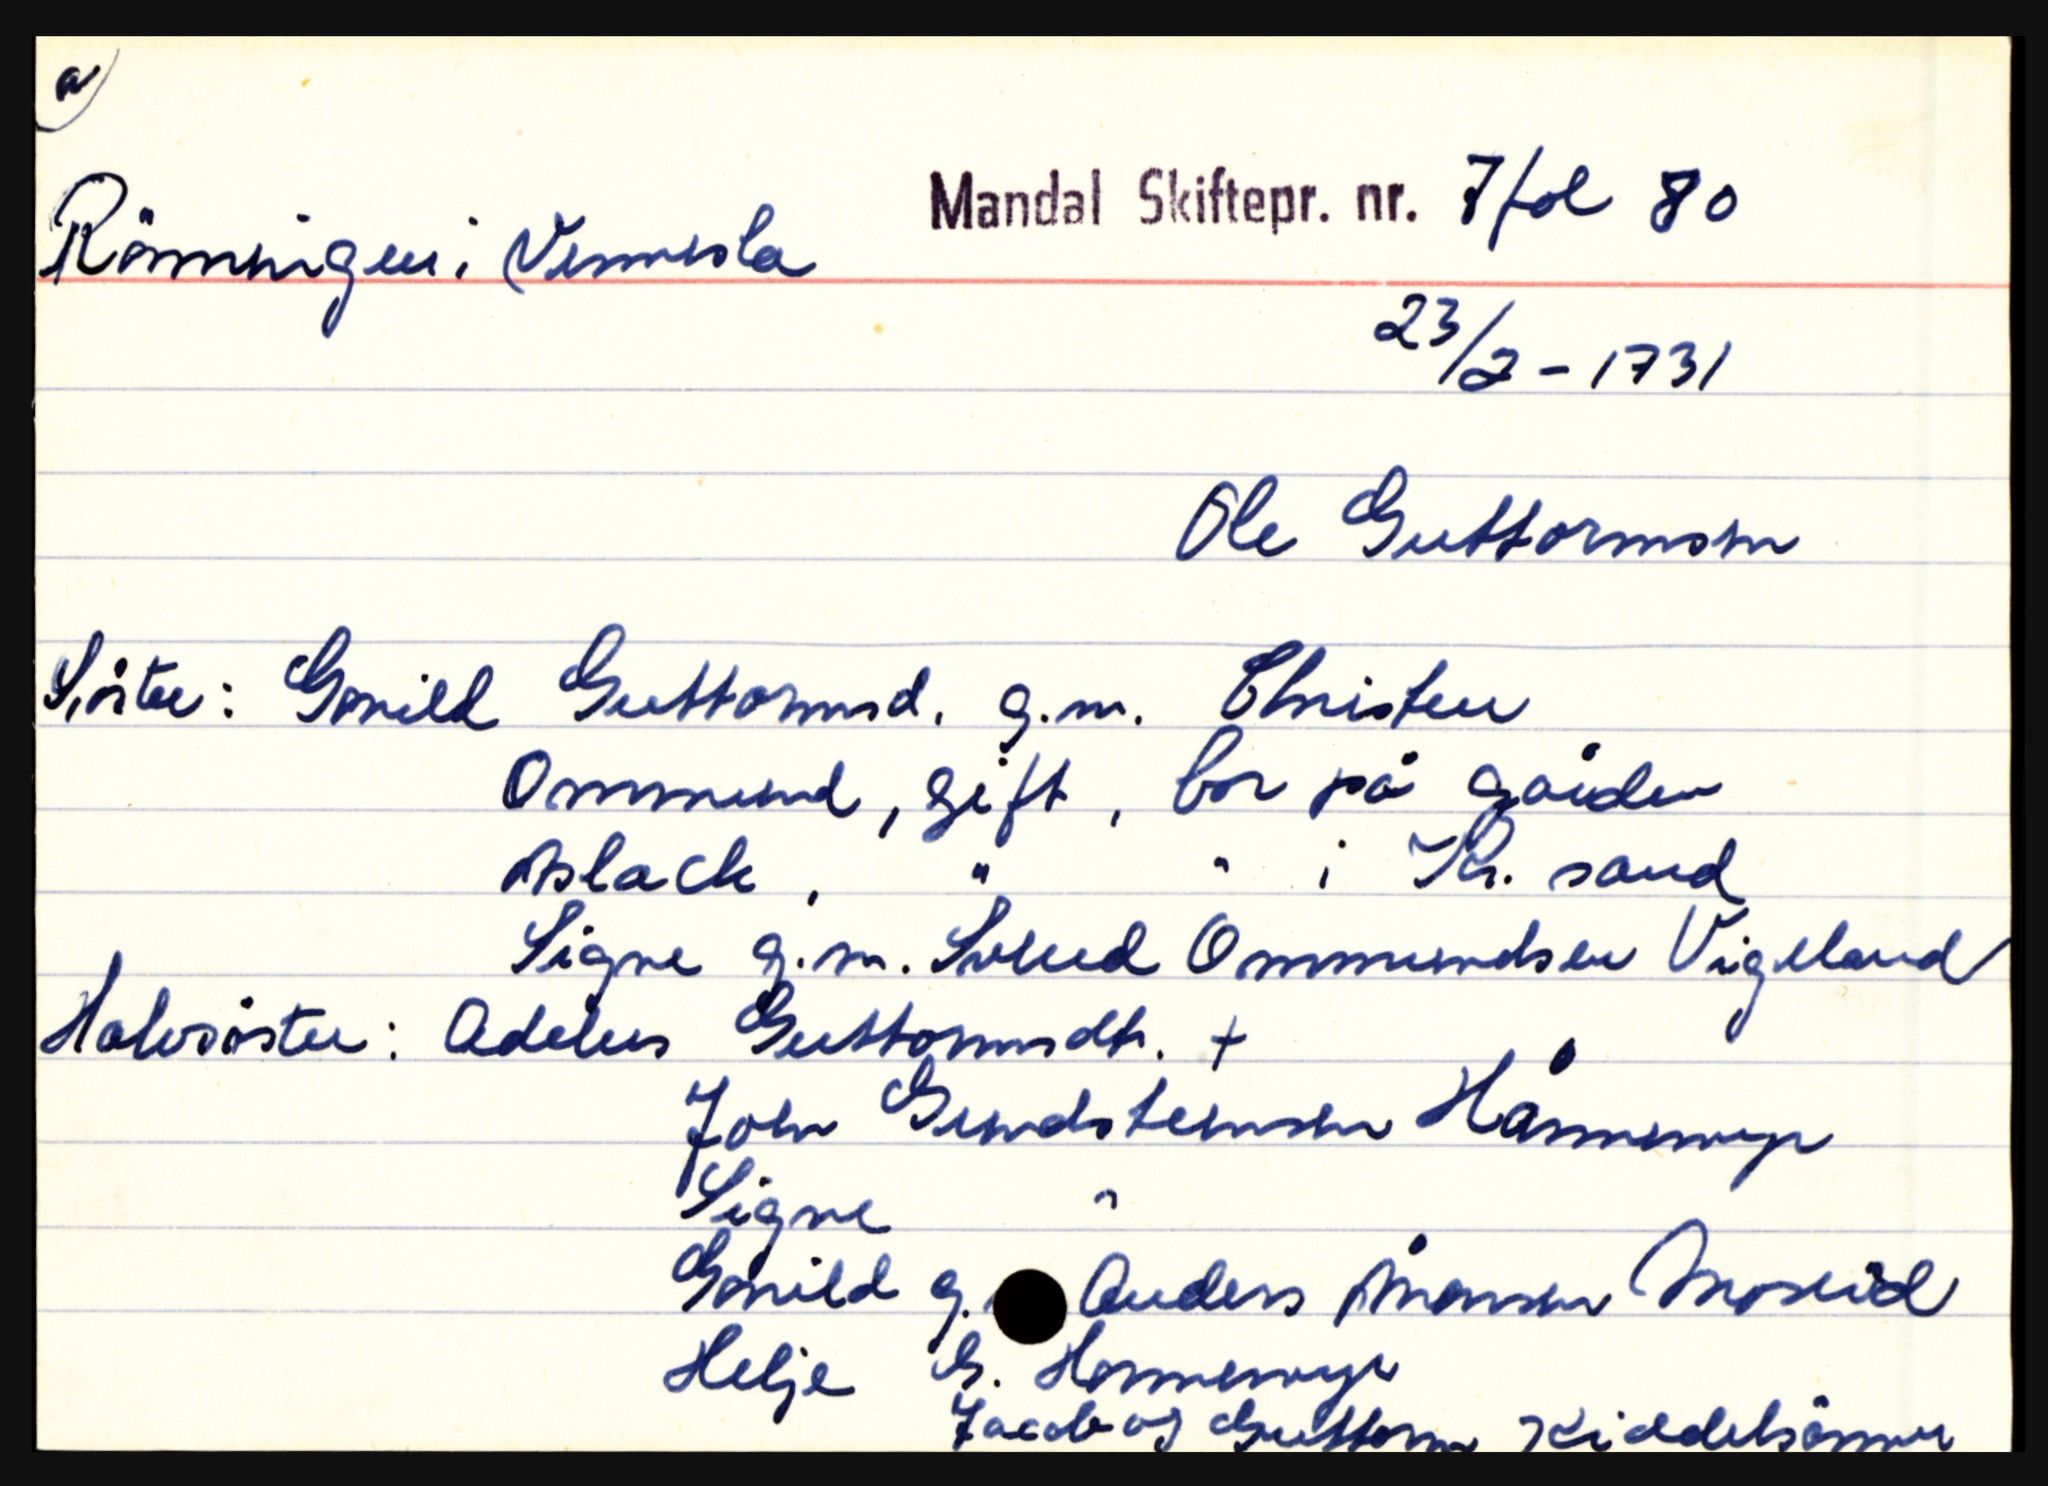 a)
Mandal Skiftepr. nr. 7 fol 80
Rönningen i Vennesla
23/2 - 1731
Ole Guttormsen
Söster: Gonild Guttormsd. g.m. Christen
Ommund, gift, bor på gården
Aslack, " " i Kr. sand
Signe g.m. Svend Ommundsen Vigeland
Halvsöster: Adelus Guttormsdtr. +
John Gundsteinsen Hånnemyr
Signe "
Gonild g. Anders Monsen Moseid
Helje G. Honnemyr
Jacob og Guttorm Kiddelsönner